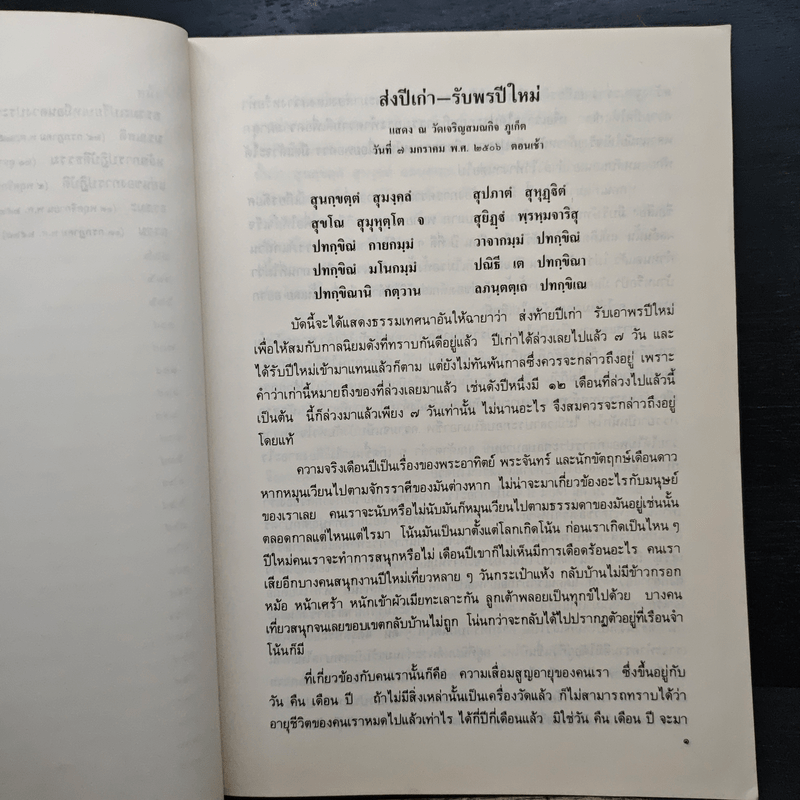 ส่งปีเก่า—รับพรปีใหม่
แสดง ณ วัดเจริญสมณกิจ ภูเก็ต
วันที่ ๗ มกราคม พ.ศ. ๒๕๐๖ ตอนเช้า
สุนกฺขตฺตํ สุมงฺคลํ สุปภาตํ สุหุฏฺฐิตํ
สุขโณ สุมุหุตฺโต จ สุยิฏฺฐํ พฺรหฺมจาริสุ
ปทกฺขิณํ กายกมฺมํ วาจากมฺมํ ปทกฺขิณํ
ปทกฺขิณํ มโนกมฺมํ ปณิธี เต ปทกฺขิณา
ปทกฺขิณานิ กตฺวาน ลภนฺตตฺเถ ปทกฺขิเณ
บัดนี้จะได้แสดงธรรมเทศนาอันให้ฉายาว่า ส่งท้ายปีเก่า รับเอาพรปีใหม่
เพื่อให้สมกับกาลนิยมดังที่ทราบกันดีอยู่แล้ว ปีเก่าได้ล่วงเลยไปแล้ว ๗ วัน และ
ได้รับปีใหม่เข้ามาแทนแล้วก็ตาม แต่ยังไม่ทันพ้นกาลซึ่งควรจะกล่าวถึงอยู่ เพราะ
คำว่าเก่านี้หมายถึงของที่ล่วงเลยมาแล้ว เช่นดังปีหนึ่งมี ๑๒ เดือนที่ล่วงไปแล้วนี้
เป็นต้น นี้ก็ล่วงมาแล้วเพียง ๗ วันเท่านั้น ไม่นานอะไร จึงสมควรจะกล่าวถึงอยู่
โดยแท้
ความจริงเดือนปีเป็นเรื่องของพระอาทิตย์ พระจันทร์ และนักขัตฤกษ์เดือนดาว
หากหมุนเวียนไปตามจักรราศีของมันต่างหาก ไม่น่าจะมาเกี่ยวข้องอะไรกับมนุษย์
ของเราเลย คนเราจะนับหรือไม่นับมันก็หมุนเวียนไปตามธรรมดาของมันอยู่เช่นนั้น
ตลอดกาลแต่ไหนแต่ไรมา โน้นมันเป็นมาตั้งแต่โลกเกิดโน้น ก่อนเราเกิดเป็นไหน ๆ
ปีใหม่คนเราจะทำการสนุกหรือไม่ เดือนปีเขาก็ไม่เห็นมีการเดือดร้อนอะไร คนเรา
เสียอีกบางคนสนุกงานปีใหม่เที่ยวหลาย ๆ วันกระเป๋าแห้ง กลับบ้านไม่มีข้าวกรอก
หม้อ หน้าเศร้า หนักเข้าผัวเมียทะเลาะกัน ลูกเต้าพลอยเป็นทุกข์ไปด้วย บางคน
เที่ยวสนุกจนเลยขอบเขตกลับบ้านไม่ถูก โน่นกว่าจะกลับได้ไปปรากฏตัวอยู่ที่เรือนจำ
โน้นก็มี
ที่เกี่ยวข้องกับคนเรานั้นก็คือ ความเสื่อมสูญอายุของคนเรา ซึ่งขึ้นอยู่กับ
วัน คืน เดือน ปี ถ้าไม่มีสิ่งเหล่านั้นเป็นเครื่องวัดแล้ว ก็ไม่สามารถทราบได้ว่า
อายุชีวิตของคนเราหมดไปแล้วเท่าไร ได้กี่ปีกี่เดือนแล้ว มิใช่วัน คืน เดือน ปี จะมา
๑